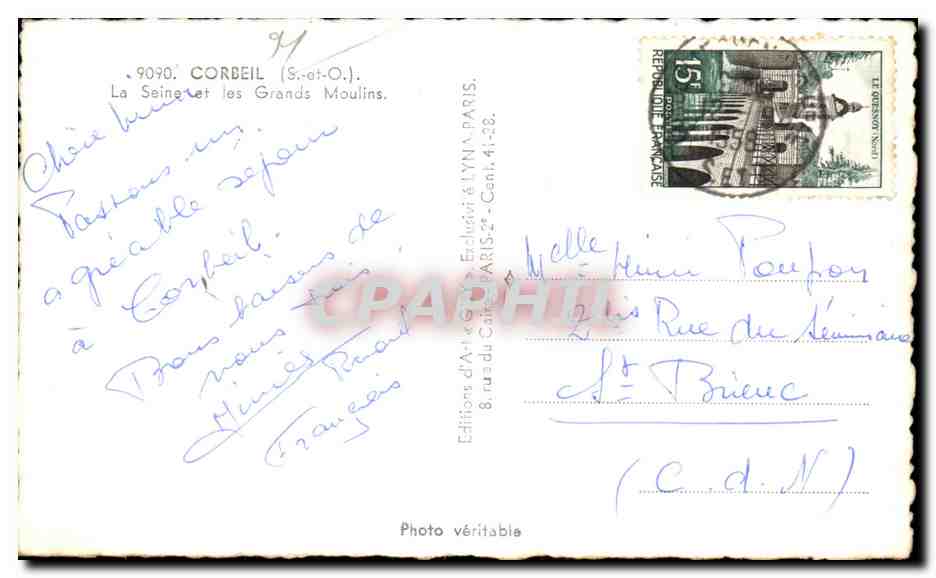 9090. CORBEIL (S.-et-O.).
La Seine et les Grands Moulins.
Chère
Passons un
agréable séjour
à Corbeil.
Bons baisers de
nous
Français
Editions d'Art Exclusivité LYNA-PARIS.
8, rue du Caire PARIS-2e - Cent. 41-28.
REPUBLIQUE FRANÇAISE
15F
POSTES
LE QUESNOY (Nord)
Melle Poupon
2 bis Rue du Séminaire
St Brieuc
(C. d. N)
CPAPHIL
Photo véritable